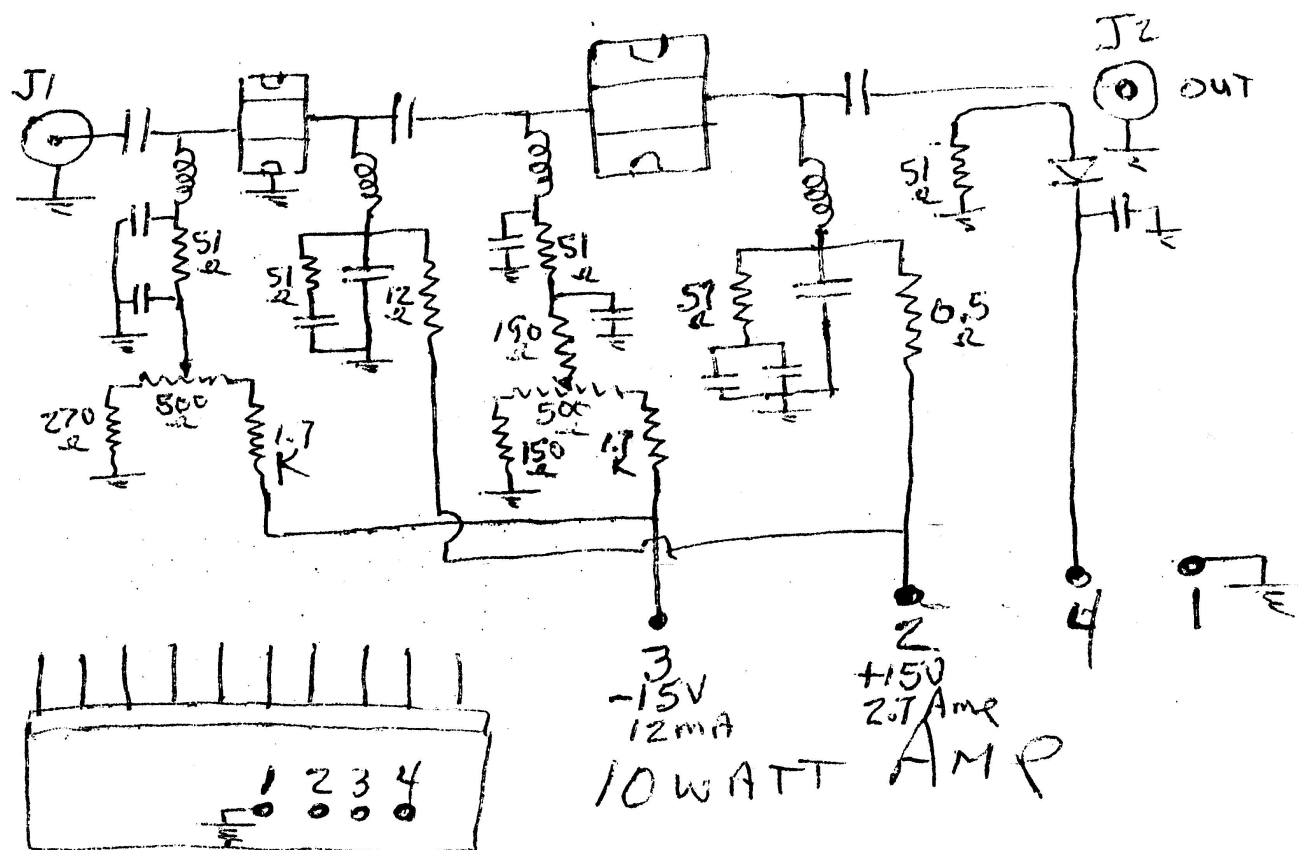 J1
J2
OUT
51
Ω
51
Ω
12
Ω
51
Ω
190
Ω
51
Ω
0.5
Ω
51
Ω
270
Ω
500
Ω
1.7
K
500
Ω
150
Ω
1.7
K
3
-15V
12mA
2
+15V
Amp
4
1
1 2 3 4
10 WATT AMP